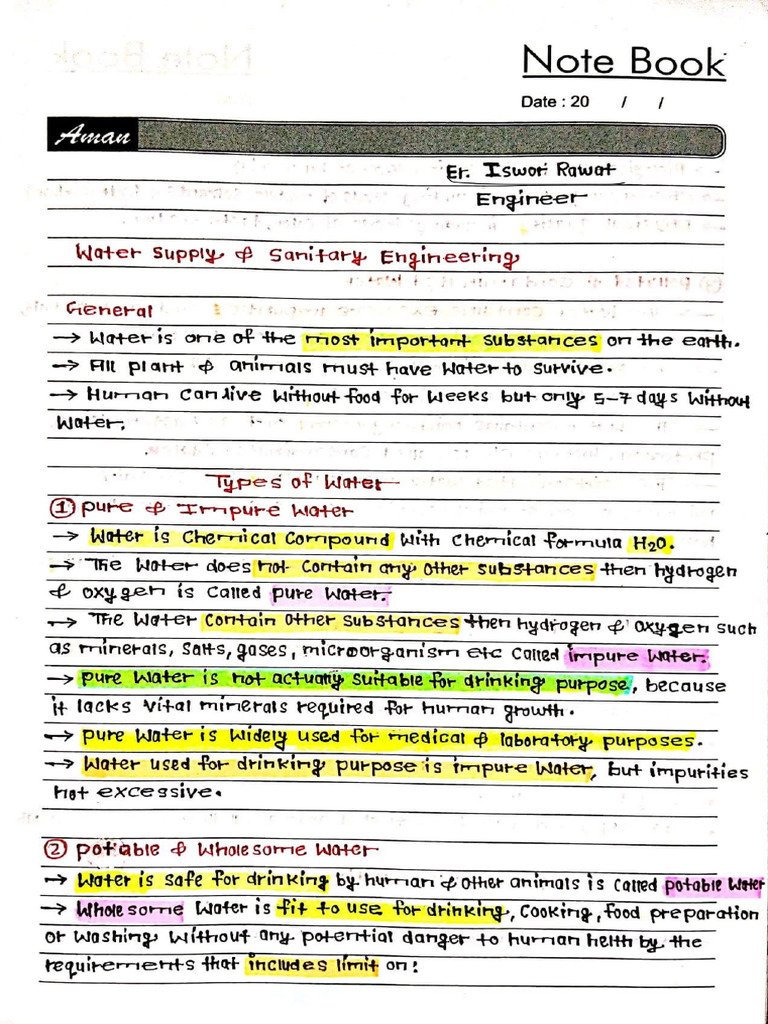 Note Book
Date : 20 / /
Aman
Er. Iswori Rawat
Engineer
Water Supply & Sanitary Engineering
General
→ Water is one of the most important substances on the earth.
→ All plant & animals must have water to survive.
→ Human can live without food for weeks but only 5-7 days without
water.
Types of Water
① pure & Impure water
→ Water is chemical compound with chemical formula H₂O.
→ The water does not contain any other substances then hydrogen
& oxygen is called pure water.
→ The water contain other substances then hydrogen & oxygen such
as minerals, salts, gases, microorganism etc called impure water.
→ pure water is not actually suitable for drinking purpose, because
it lacks vital minerals required for human growth.
→ pure water is widely used for medical & laboratory purposes.
→ Water used for drinking purpose is impure water, but impurities
not excessive.
② potable & Wholesome water
→ Water is safe for drinking by human & other animals is called potable water
→ Wholesome water is fit to use for drinking, cooking, food preparation
or washing without any potential danger to human helth by the
requirements that includes limit on: